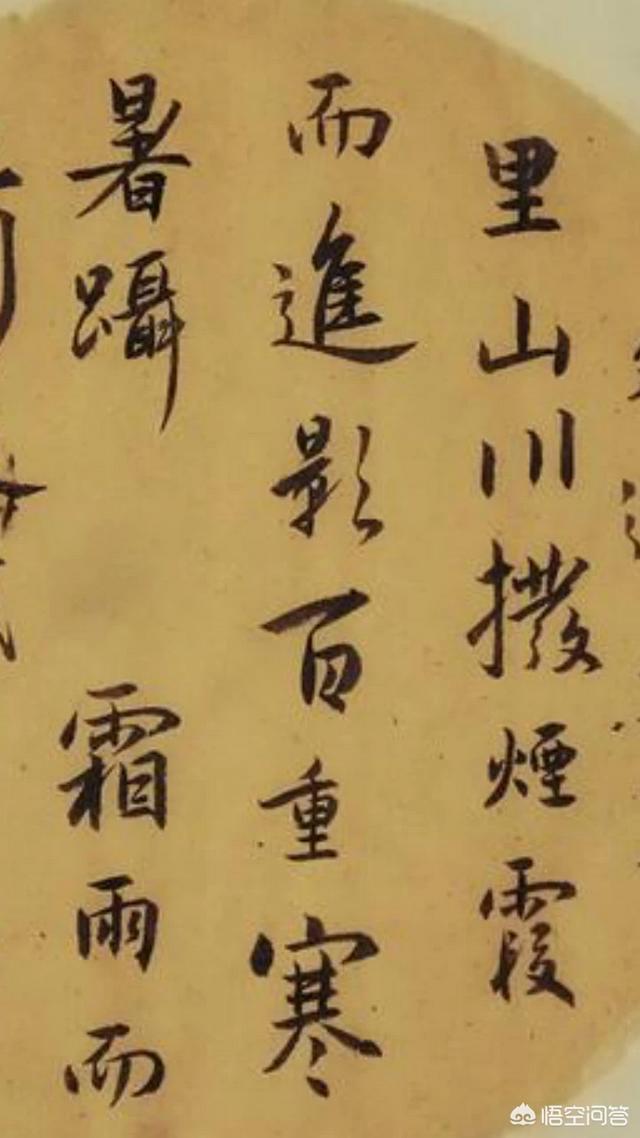 里山川撥煙霞
而進影百重寒
暑躡霜雨而
悟空问答